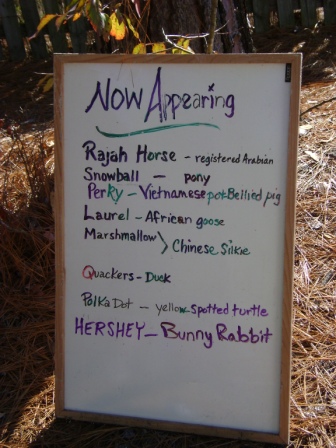 Now Appearing
Rajah Horse - registered Arabian
Snowball - pony
Perky - Vietnamese pot Bellied pig
Laurel - African goose
Marshmallow > Chinese Silkie
Quackers - Duck
Polka Dot - yellow Spotted turtle
HERSHEY - Bunny Rabbit